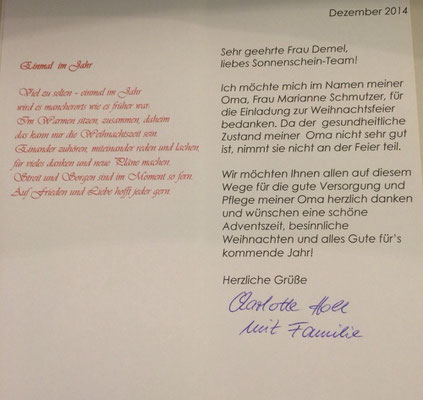 Einmal im Jahr
Viel zu selten - einmal im Jahr
wird es mancherorts wie es früher war.
Im Warmen sitzen, zusammen, daheim
das kann nur die Weihnachtszeit sein.
Einander zuhören, miteinander reden und lachen,
für vieles danken und neue Pläne machen.
Streit und Sorgen sind im Moment so fern.
Auf Frieden und Liebe hofft jeder gern.
Dezember 2014
Sehr geehrte Frau Demel,
liebes Sonnenschein-Team!
Ich möchte mich im Namen meiner
Oma, Frau Marianne Schmutzer, für
die Einladung zur Weihnachtsfeier
bedanken. Da der gesundheitliche
Zustand meiner Oma nicht sehr gut
ist, nimmt sie nicht an der Feier teil.
Wir möchten Ihnen allen auf diesem
Wege für die gute Versorgung und
Pflege meiner Oma herzlich danken
und wünschen eine schöne
Adventszeit, besinnliche
Weihnachten und alles Gute für's
kommende Jahr!
Herzliche Grüße
Charlotte Holl
mit Familie